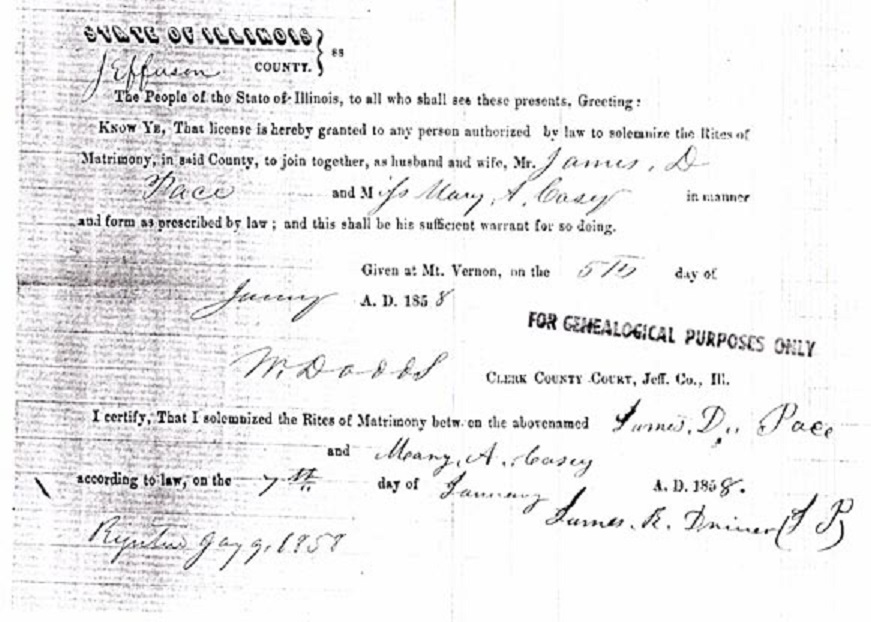 STATE OF ILLINOIS } ss
Jefferson COUNTY.
The People of the State of Illinois, to all who shall see these presents, Greeting:
KNOW YE, That license is hereby granted to any person authorized by law to solemnize the Rites of
Matrimony, in said County, to join together, as husband and wife, Mr. James. D
Pace and Miss Mary. A. Casey in manner
and form as prescribed by law; and this shall be his sufficient warrant for so doing.
Given at Mt. Vernon, on the 5th day of
A. D. 1858
FOR GENEALOGICAL PURPOSES ONLY
W. Dodds CLERK COUNTY COURT, Jeff. Co., Ill.
I certify, That I solemnized the Rites of Matrimony between the abovenamed James. D. Pace
and Mary. A. Casey
according to law, on the 7th day of January A. D. 1858.
James. R. (J P)
1858